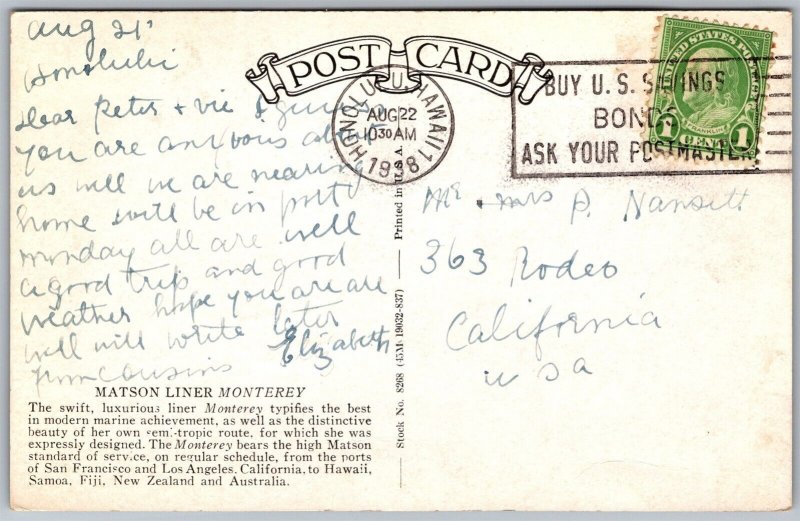 Aug 21'
Honolulu
POST CARD
Dear Peter + Vic I guess
you are anxious about
us well we are nearing
home will be in port
monday all are well
a good trip and good
weather hope you are are
well will write later
from cousins Elizabeth
HONOLULU, HAWAII
AUG 22
10 30 AM
1938
BUY U.S. SAVINGS
BONDS
ASK YOUR POSTMASTER
UNITED STATES POSTAGE
FRANKLIN
1 CENT 1
Mr + mrs P. Nansett
363 Rodeo
California
USA
Stock No. 8268 (45M-19032-837) Printed in U.S.A.
MATSON LINER MONTEREY
The swift, luxurious liner Monterey typifies the best
in modern marine achievement, as well as the distinctive
beauty of her own semi-tropic route, for which she was
expressly designed. The Monterey bears the high Matson
standard of service, on regular schedule, from the ports
of San Francisco and Los Angeles, California, to Hawaii,
Samoa, Fiji, New Zealand and Australia.